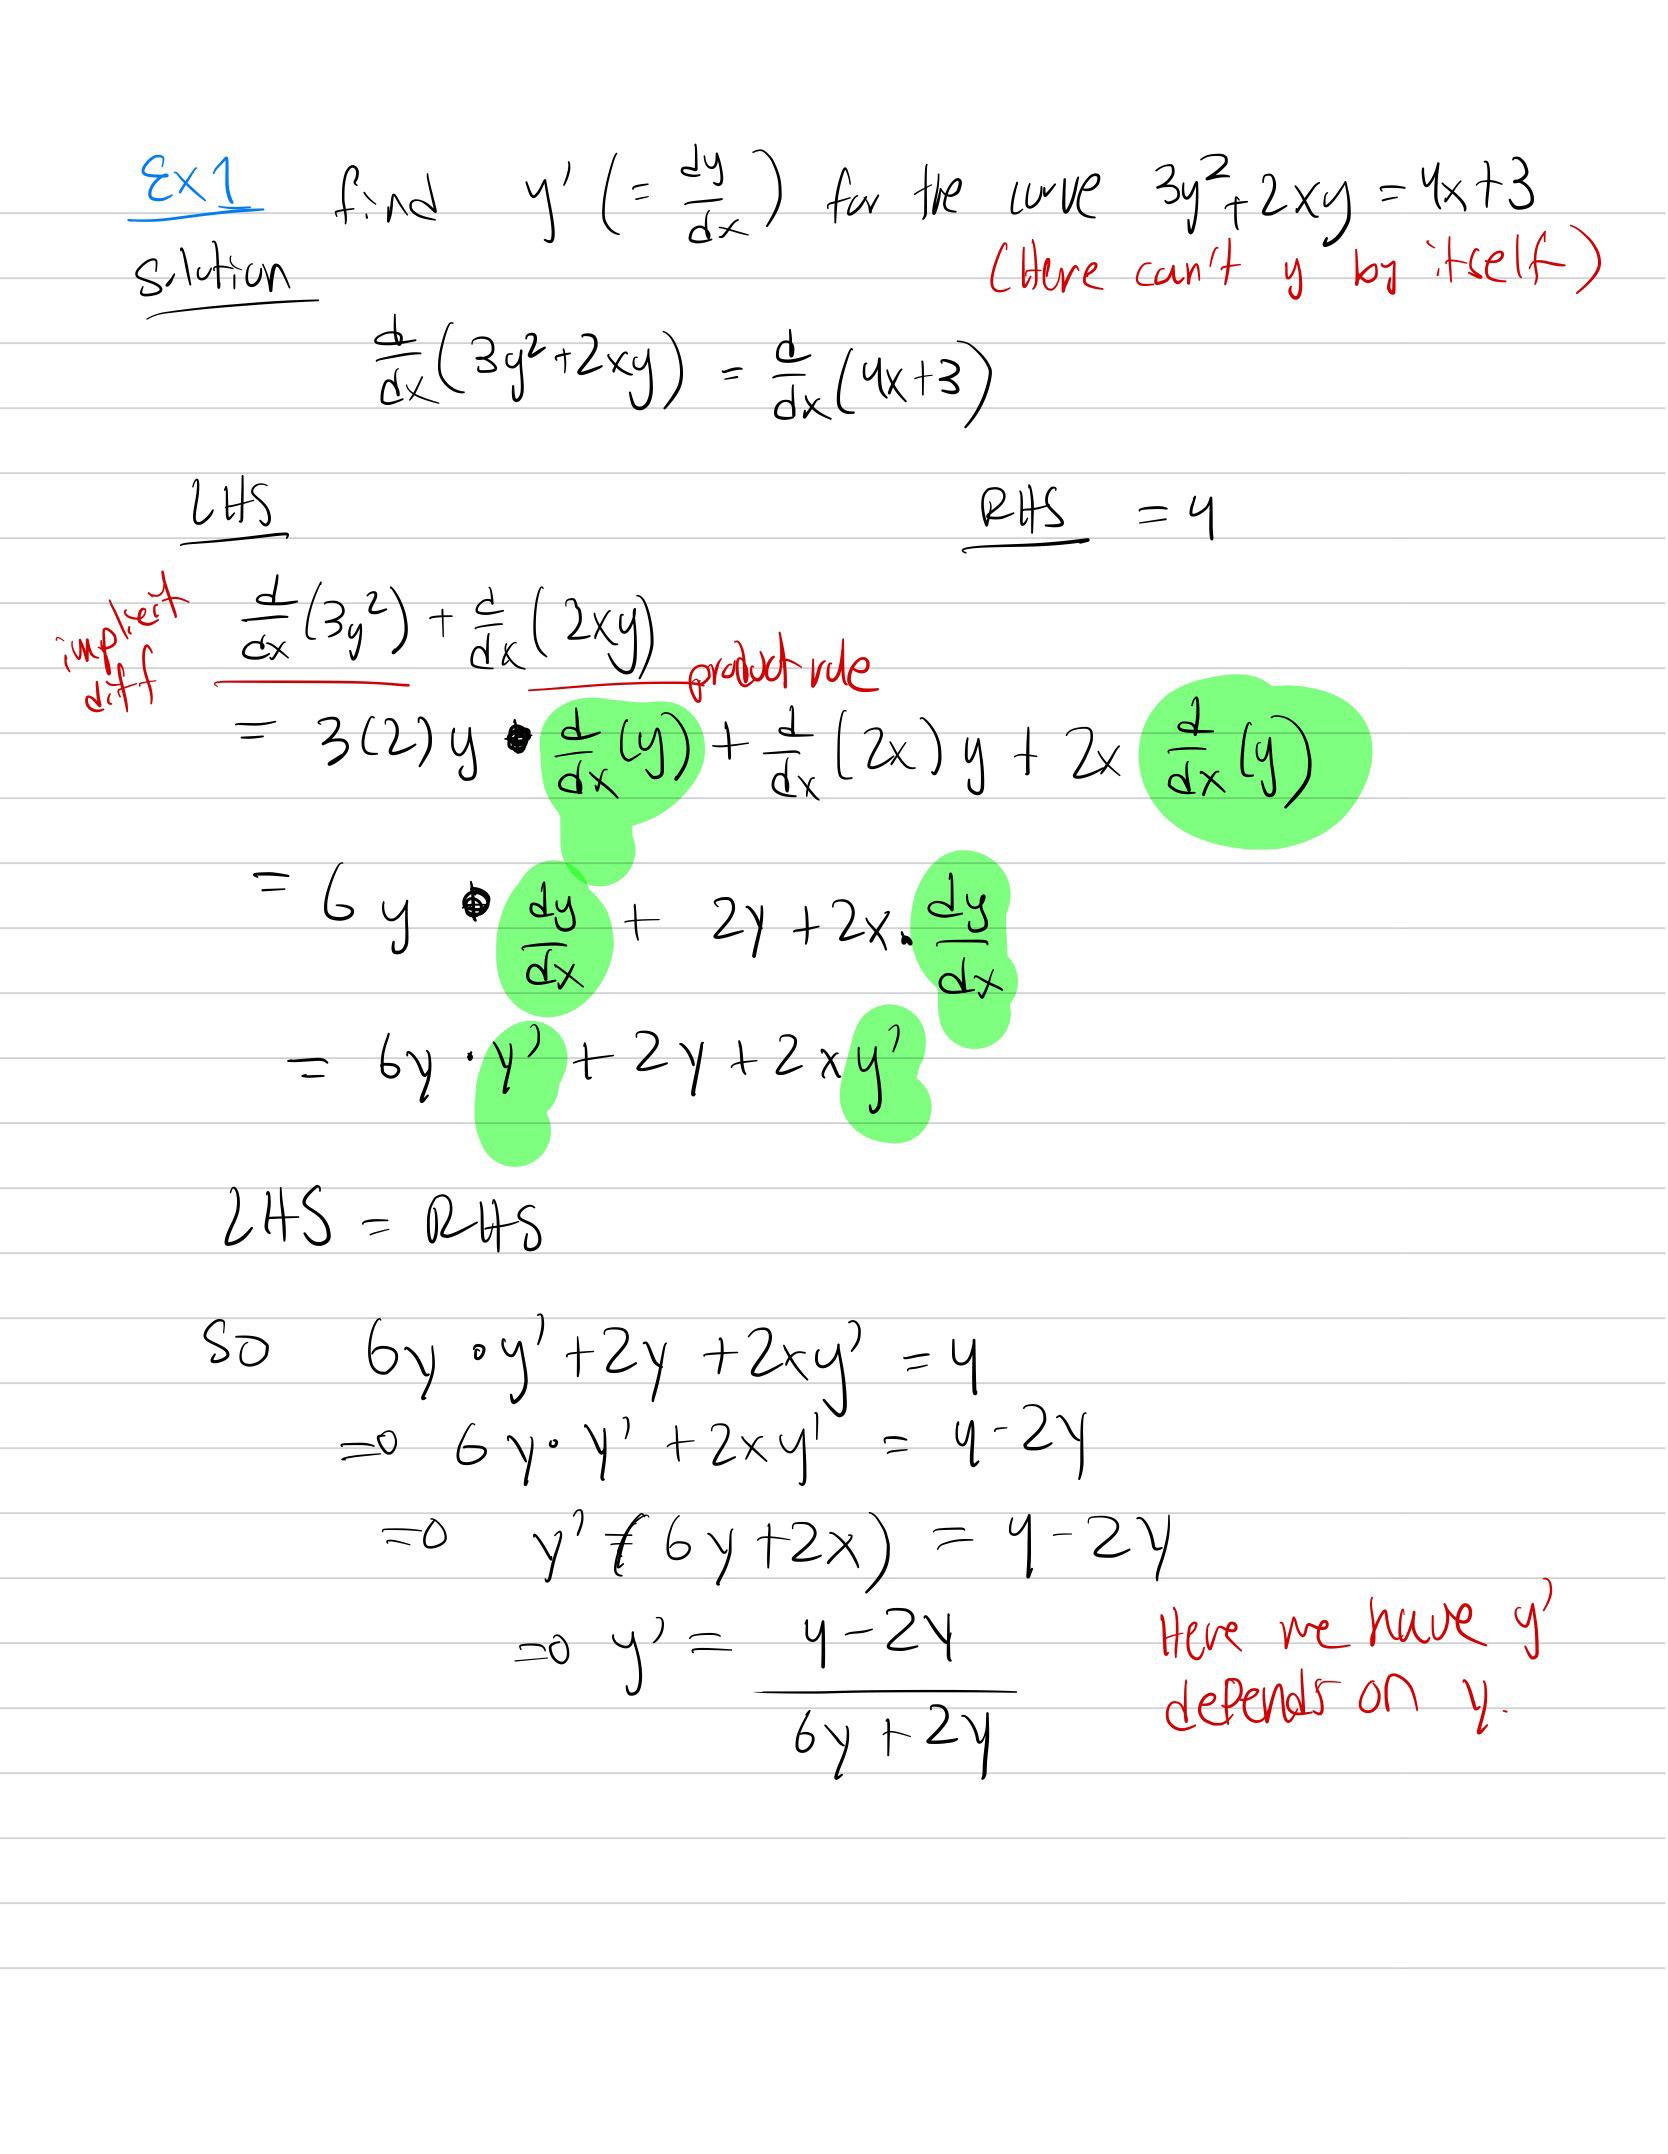 Ex1 find y' (= dy/dx) for the curve 3y² + 2xy = 4x+3
Solution (Here can't y by itself)
d/dx (3y² + 2xy) = d/dx (4x+3)
LHS RHS = 4
implicit diff d/dx (3y²) + d/dx (2xy) product rule
= 3(2) y • d/dx (y) + d/dx (2x) y + 2x d/dx (y)
= 6y • dy/dx + 2y + 2x · dy/dx
= 6y · y' + 2y + 2xy'
LHS = RHS
So 6y · y' + 2y + 2xy' = 4
⇒ 6y · y' + 2xy' = 4 - 2y
⇒ y' (6y + 2x) = 4 - 2y
⇒ y' = (4 - 2y)/(6y + 2y) Here we have y'
depends on y.